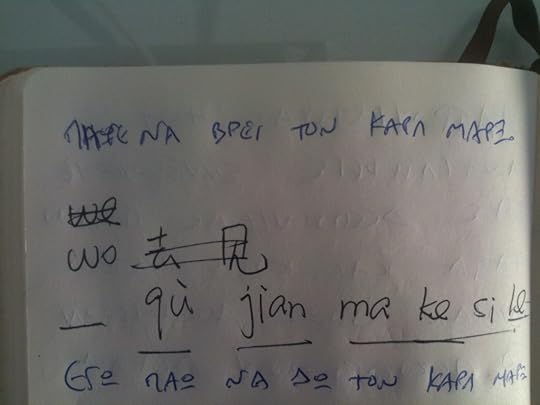 ΝΑ ΒΡΕΙ ΤΟΝ ΚΑΡΛ ΜΑΡΞ
wo 去 见
qù jian ma ke si ke
ΕΓΩ ΠΑΩ ΝΑ ΔΩ ΤΟΝ ΚΑΡΛ ΜΑΡΞ